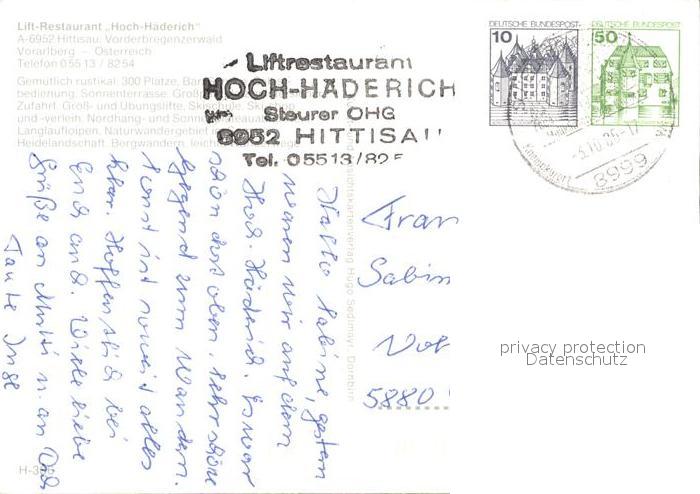 Lift-Restaurant „Hoch-Häderich"
A-6952 Hittisau, Vorderbregenzerwald
Vorarlberg – Österreich
Telefon 05513 / 8254
Gemütlich rustikal: 300 Plätze, Bar
bedienung, Sonnenterrasse. Groß
Zufahrt. Groß- und Übungslifte, Skischule, Skishop
und -verleih. Nordhang- und Sonnen
Langlaufloipen, Naturwandergebiet
Heidelandschaft, Bergwandern, leicht
Liftrestaurant
HOCH-HÄDERICH
Steurer OHG
6952 HITTISAU
Tel. 05513/825
DEUTSCHE BUNDESPOST
10
DEUTSCHE BUNDESPOST
50
8999
Hallo Sabine, gestern
waren wir auf dem
Hoch-Häderich. Es war
schön dort oben. Sehr schöne
Gegend zum Wandern.
Sonst ist soweit alles
klar. Hoffentlich bei
Euch auch. Viele liebe
Grüße an Mutti u. an Dich
Tante Inge
Ansichtskartenverlag Hugo Sedlmayr, Dornbirn
Sabin
5880
privacy protection
Datenschutz